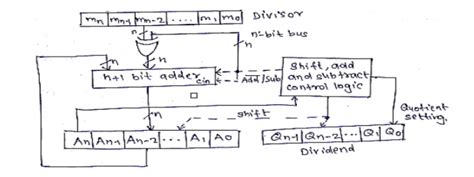 mn mn-1 mn-2 .... m1 m0 DIVISOR
n n-bit bus
n n
n+1 bit adder cin Add/Sub
shift, add and subtract control logic
n shift
Quotient setting.
An An-1 An-2 ... A1 A0
Qn-1 Qn-2 ... Q1 Q0
Dividend